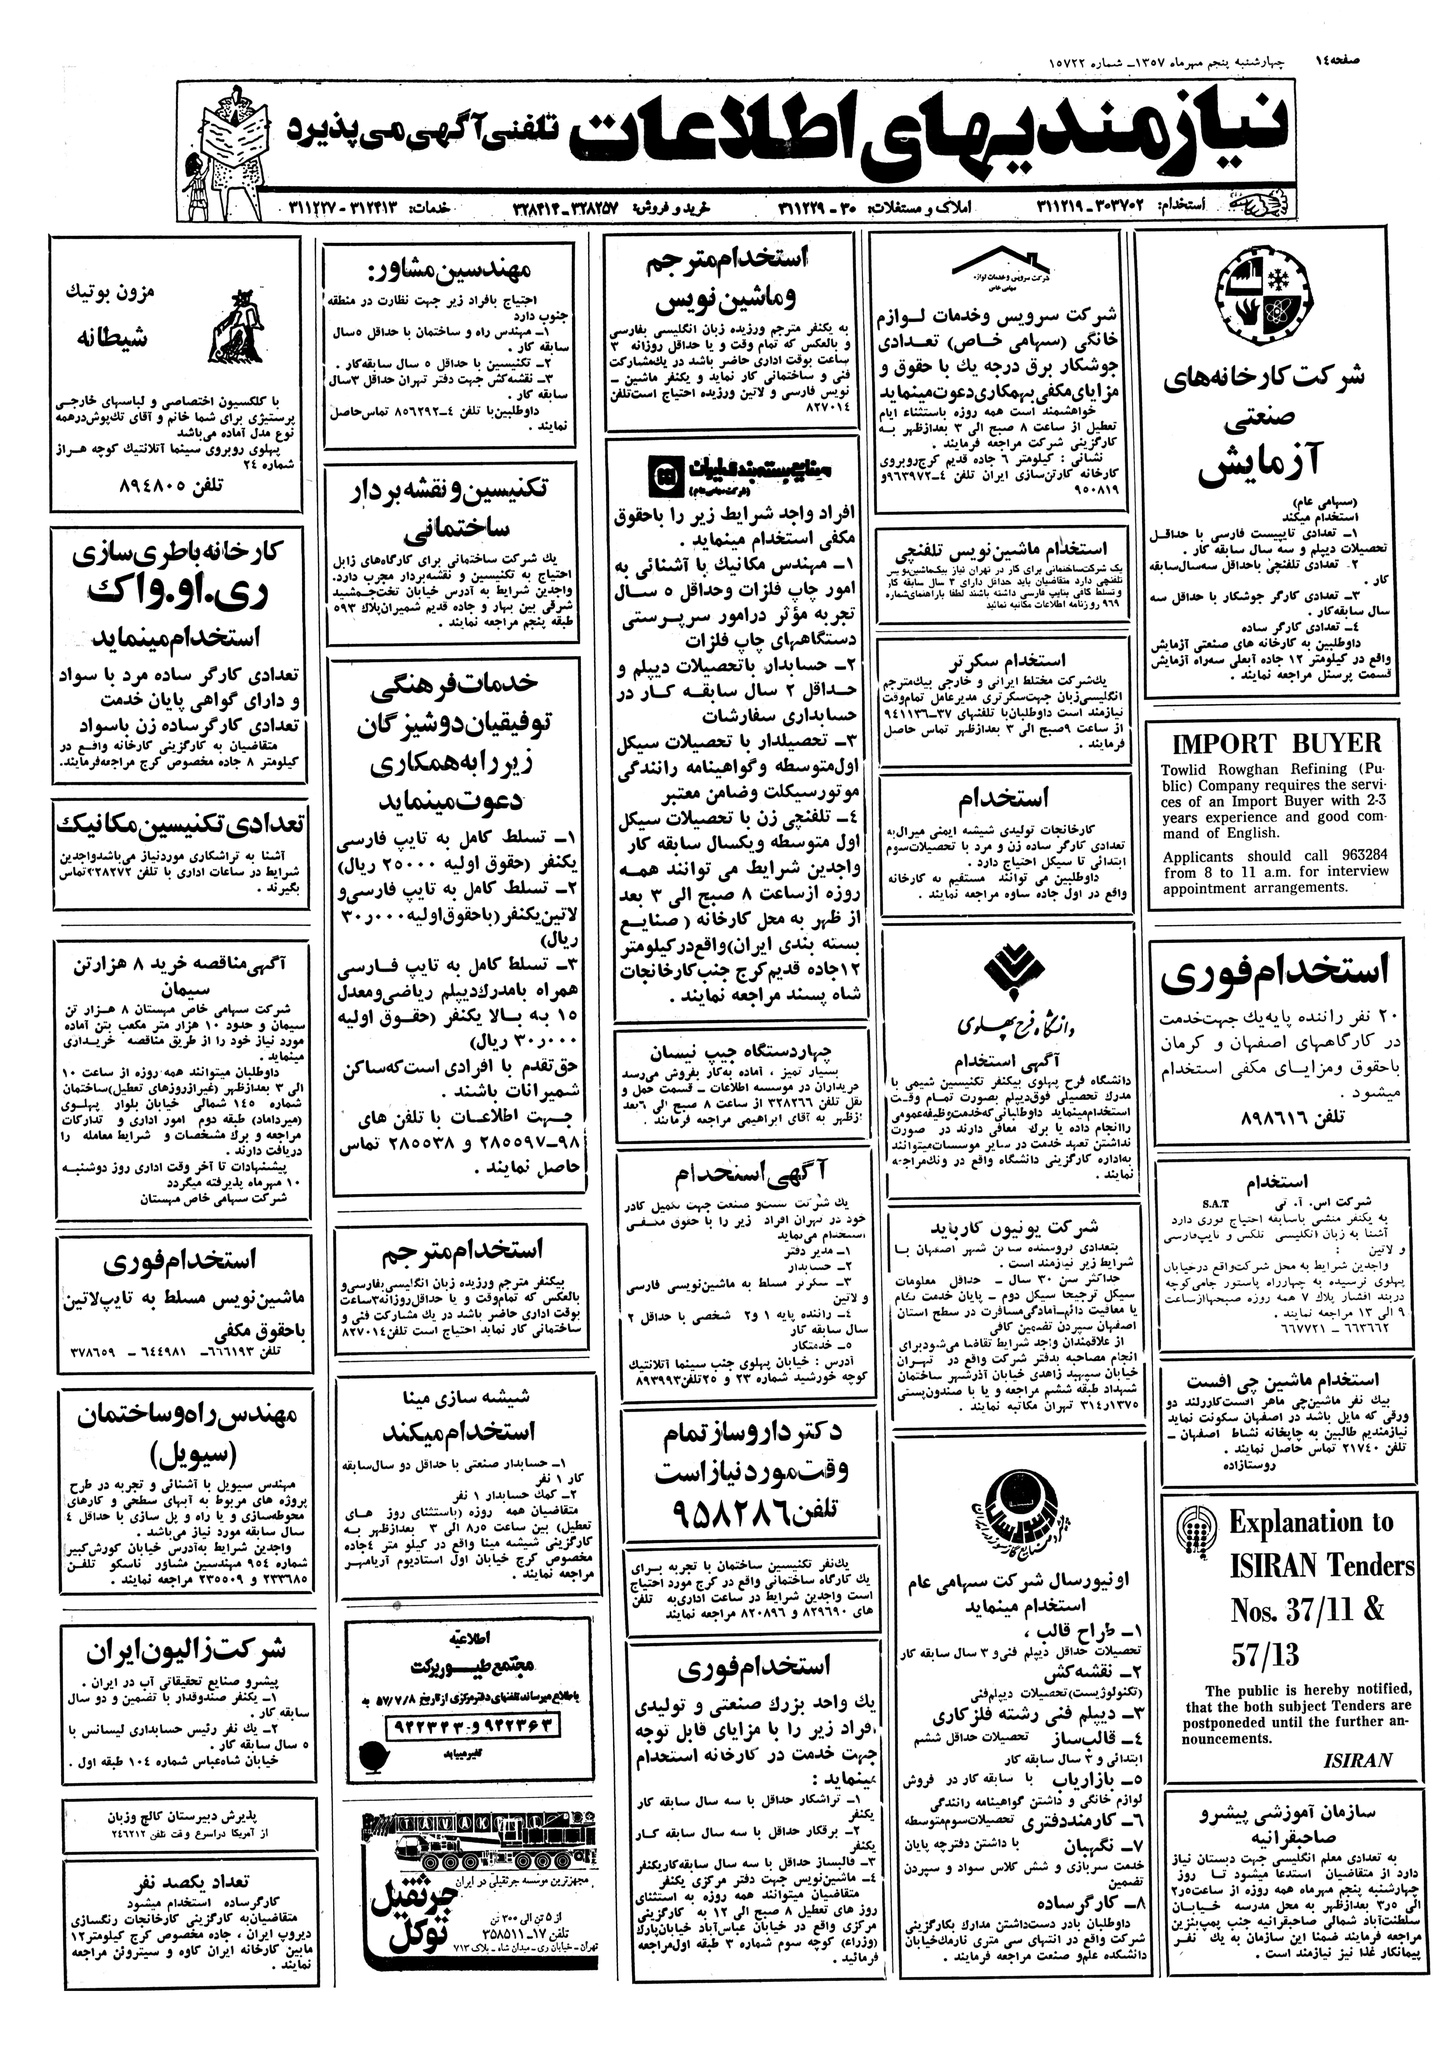 صفحه ۱۴
چهارشنبه پنجم مهرماه ۱۳۵۷ـ شماره ۱۵۷۲۲
نیازمندیهای اطلاعات تلفنی آگهی می‌پذیرد
استخدام: ۳۰۳۷۰۲ـ۳۱۱۲۱۹
املاک و مستغلات: ۳۰ـ۳۱۱۲۲۹
خرید و فروش: ۳۲۸۲۵۷ـ۳۲۸۴۱۴
خدمات: ۳۱۲۴۱۳ـ۳۱۱۲۲۷
شرکت کارخانه‌های
صنعتی
آزمایش
(سهامی عام)
استخدام میکند
۱ـ تعدادی تایپیست فارسی با حداقل
تحصیلات دیپلم و سه سال سابقه کار .
۲ـ تعدادی تلفنچی باحداقل سه‌سال‌سابقه
کار .
۳ـ تعدادی کارگر جوشکار با حداقل سه
سال سابقه‌کار .
۴ـ تعدادی کارگر ساده
داوطلبین به کارخانه های صنعتی آزمایش
واقع در کیلومتر ۱۲ جاده آبعلی سه‌راه آزمایش
قسمت پرسنل مراجعه نمایند .
IMPORT BUYER
Towlid Rowghan Refining (Pu-
blic) Company requires the servi-
ces of an Import Buyer with 2-3
years experience and good com-
mand of English.
Applicants should call 963284
from 8 to 11 a.m. for interview
appointment arrangements.
استخدام فوری
۲۰ نفر راننده پایه‌یك جهت‌خدمت
در کارگاههای اصفهان و کرمان
باحقوق ومزایای مکفی استخدام
میشود .
تلفن ۸۹۸۶۱۶
استخدام
شرکت اس. آ. تی S.A.T
به یکنفر منشی باسابقه احتیاج فوری دارد
آشنا به زبان انگلیسی تلکس و تایپ‌فارسی
و لاتین :
واجدین شرایط به محل شرکت‌واقع درخیابان
پهلوی نرسیده به چهارراه پاستور جامی‌کوچه
دربند افشار پلاك ۷ همه روزه صبحهاازساعت
۹ الی ۱۳ مراجعه نمایند .
۶۶۳۶۶۲ ـ ۶۶۷۷۲۱
استخدام ماشین چی افست
بیك نفر ماشین‌چی ماهر افست‌کاررلند دو
ورقی که مایل باشد در اصفهان سکونت نماید
نیازمندیم طالبین به چاپخانه نشاط اصفهان ـ
تلفن ۲۱۷۴۰ تماس حاصل نمایند .
روستازاده
Explanation to
ISIRAN Tenders
Nos. 37/11 &
57/13
The public is hereby notified,
that the both subject Tenders are
postponeded until the further an-
nouncements.
ISIRAN
سازمان آموزشی پیشرو
صاحبقرانیه
به تعدادی معلم انگلیسی جهت دبستان نیاز
دارد از متقاضیان استدعا میشود تا روز
چهارشنبه پنجم مهرماه همه روزه از ساعت۲ر۵
الی ۳ر۵ بعدازظهر به محل مدرسه خیابان
سلطنت‌آباد شمالی صاحبقرانیه جنب پمپ‌بنزین
مراجعه فرمایند ضمنا این سازمان به یك نفر
پیمانکار غذا نیز نیازمند است .
شرکت سرویس و خدمات لوازم
شرکت سرویس وخدمات لوازم
خانگی (سهامی خاص) تعدادی
جوشکار برق درجه یك با حقوق و
مزایای مکفی بهمکاری دعوت‌مینماید
خواهشمند است همه روزه باستثناء ایام
تعطیل از ساعت ۸ صبح الی ۳ بعدازظهر به
کارگزینی شرکت مراجعه فرمایند .
نشانی : کیلومتر ۶ جاده قدیم کرج‌روبروی
کارخانه کارتن‌سازی ایران تلفن ۴ـ۹۶۳۹۷۲و
۹۵۰۸۱۹
استخدام ماشین نویس تلفنچی
یك شرکت‌ساختمانی برای کار در تهران نیاز بیك‌ماشین‌نویس
تلفنچی دارد متقاضیان باید حداقل دارای ۳ سال سابقه کار
و تسلط کافی بتایپ فارسی داشته باشند لطفا باراهنمای‌شماره
۹۶۹ روزنامه اطلاعات مکاتبه نمائید
استخدام سکرتر
یك‌شرکت مختلط ایرانی و خارجی بیك‌مترجم
انگلیسی‌زبان جهت‌سکرتری مدیرعامل تمام‌وقت
نیازمند است داوطلبان‌با تلفنهای ۳۷ـ۹۴۱۱۳۶
از ساعت ۹صبح الی ۳ بعدازظهر تماس حاصل
فرمایند .
استخدام
کارخانجات تولیدی شیشه ایمنی میرال‌به
تعدادی کارگر ساده زن و مرد با تحصیلات‌سوم
ابتدائی تا سیکل احتیاج دارد .
داوطلبین می توانند مستقیم به کارخانه
واقع در اول جاده ساوه مراجعه نمایند .
دانشگاه فرح پهلوی
آگهی استخدام
دانشگاه فرح پهلوی بیکنفر تکنیسین شیمی با
مدرك تحصیلی فوق‌دیپلم بصورت تمام وقت
استخدام‌مینماید داوطلبانی‌که‌خدمت‌وظیفه‌عمومی
راانجام داده یا برك معافی دارند در صورت
نداشتن تعهد خدمت در سایر موسسات‌میتوانند
به‌اداره کارگزینی دانشگاه واقع در ونك‌مراجعه
نمایند .
شرکت یونیون کارباید
بتعدادی فروسنده ساکن شهر اصفهان با
شرایط زیر نیازمند است .
حداکثر سن ۳۰ سال ـ حداقل معلومات
سیکل ترجیحا سیکل دوم ـ پایان خدمت نظام
یا معافیت دائم-آمادگی‌مسافرت در سطح استان
اصفهان سپردن تضمین کافی
از علاقمندان واجد شرایط تقاضا می‌شودبرای
انجام مصاحبه بدفتر شرکت واقع در تهران
خیابان سپهبد زاهدی خیابان آذرشهر ساختمان
شهداد طبقه ششم مراجعه و یا با صندوق‌پستی
۳۱۴ر۱۳۷۵ تهران مکاتبه نمایند .
اونیورسال شرکت سهامی عام
استخدام مینماید
۱ـ طراح قالب ،
تحصیلات حداقل دیپلم فنی‌و ۳ سال سابقه کار
۲ـ نقشه‌کش
(تکنولوژیست) تحصیلات دیپلم‌فنی
۳ـ دیپلم فنی رشته فلزکاری
۴ـ قالب‌ساز تحصیلات حداقل ششم
ابتدائی و ۳ سال سابقه کار
۵ـ بازاریاب با سابقه کار در فروش
لوازم خانگی و داشتن گواهینامه رانندگی
۶ـ کارمنددفتری تحصیلات‌سوم‌متوسطه
۷ـ نگهبان با داشتن دفترچه پایان
خدمت سربازی و شش کلاس سواد و سپردن
تضمین
۸ـ کارگر ساده
داوطلبان بادر دست‌داشتن مدارك بکارگزینی
شرکت واقع در انتهای سی متری نارمك‌خیابان
دانشکده علم‌و صنعت مراجعه فرمایند .
استخدام مترجم
و ماشین نویس
به یکنفر مترجم ورزیده زبان انگلیسی بفارسی
و بالعکس که تمام وقت و یا حداقل روزانه ۳
ساعت بوقت اداری حاضر باشد در یك‌مشارکت
فنی و ساختمانی کار نماید و یکنفر ماشین ـ
نویس فارسی و لاتین ورزیده احتیاج است‌تلفن
۸۲۷۰۱۴
صنایع بسته بندی ایران
(شرکت سهامی عام)
افراد واجد شرایط زیر را باحقوق
مکفی استخدام مینماید .
۱ـ مهندس مکانیك با آشنائی به
امور چاپ فلزات وحداقل ۵ سال
تجربه مؤثر درامور سرپرستی
دستگاههای چاپ فلزات
۲ـ حسابدار باتحصیلات دیپلم و
حداقل ۲ سال سابقه کار در
حسابداری سفارشات
۳ـ تحصیلدار با تحصیلات سیکل
اول‌متوسطه وگواهینامه رانندگی
موتورسیکلت وضامن معتبر
۴ـ تلفنچی زن با تحصیلات سیکل
اول متوسطه ویکسال سابقه کار
واجدین شرایط می توانند همه
روزه ازساعت ۸ صبح الی ۳ بعد
از ظهر به محل کارخانه ( صنایع
بسته بندی ایران)واقع‌درکیلومتر
۱۲جاده قدیم‌کرج جنب‌کارخانجات
شاه پسند مراجعه نمایند .
چهاردستگاه جیپ نیسان
بسیار تمیز ، آماده به‌کار بفروش می‌رسد
خریداران در موسسه اطلاعات ـ قسمت حمل و
نقل تلفن ۳۲۸۲۶۶ از ساعت ۸ صبح الی ۶بعد
ازظهر به آقای ابراهیمی مراجعه فرمائید .
آگهی استخدام
یك شرکت کشت‌و صنعت جهت تکمیل کادر
خود در تهران افراد زیر را با حقوق مکفی
استخدام می‌نماید
۱ـ مدیر دفتر
۲ـ حسابدار
۳ـ سکرتر مسلط به ماشین‌نویسی فارسی
و لاتین
۴ـ راننده پایه ۱ و۲ شخصی با حداقل ۲
سال سابقه کار
۵ـ خدمتکار
آدرس : خیابان پهلوی جنب سینما آتلانتیك
کوچه خورشید شماره ۲۳ و ۲۵تلفن۸۹۳۹۹۳
دکتر دارو ساز تمام
وقت مورد نیاز است
تلفن ۹۵۸۲۸۶
یك‌نفر تکنیسین ساختمان با تجربه برای
یك کارگاه ساختمانی واقع در کرج مورد احتیاج
است واجدین شرایط در ساعت اداری‌به تلفن
های ۸۲۹۶۹۰ و ۸۲۰۸۹۶ مراجعه نمایند
استخدام فوری
یك واحد بزرك صنعتی و تولیدی
افراد زیر را با مزایای قابل توجه
جهت خدمت در کارخانه استخدام
مینماید :
۱ـ تراشکار حداقل با سه سال سابقه کار
یکنفر
۲ـ برقکار حداقل با سه سال سابقه کار
یکنفر
۳ـ قالبساز حداقل با سه سال سابقه کاریکنفر
۴ـ ماشین‌نویس جهت دفتر مرکزی یکنفر
متقاضیان میتوانند همه روزه به استثنای
روز های تعطیل ۸ صبح الی ۱۲ به کارگزینی
مرکزی واقع در خیابان عباس‌آباد خیابان‌پارك
(وزراء) کوچه سوم شماره ۳ طبقه اول‌مراجعه
فرمائید .
مهندسین مشاور:
احتیاج بافراد زیر جهت نظارت در منطقه
جنوب دارد
۱ـ مهندس راه و ساختمان با حداقل ۵سال
سابقه کار .
۲ـ تکنیسین با حداقل ۵ سال سابقه‌کار .
۳ـ نقشه‌کش جهت دفتر تهران حداقل ۳سال
سابقه کار .
داوطلبین‌با تلفن ۴ـ۸۵۶۲۹۲ تماس‌حاصل
نمایند .
تکنیسین و نقشه بردار
ساختمانی
یك شرکت ساختمانی برای کارگاه‌های زابل
احتیاج به تکنیسین و نقشه‌بردار مجرب دارد.
واجدین شرایط به آدرس خیابان تخت‌جمشید
شرقی بین بهار و جاده قدیم شمیران‌پلاك ۵۹۳
طبقه پنجم مراجعه نمایند .
خدمات فرهنگی
توفیقیان دوشیزگان
زیر را به همکاری
دعوت مینماید
۱ـ تسلط کامل به تایپ فارسی
یکنفر (حقوق اولیه ۲۵۰۰۰ ریال)
۲ـ تسلط کامل به تایپ فارسی‌و
لاتین‌یکنفر (باحقوق‌اولیه ۳۰ر۰۰۰
ریال)
۳ـ تسلط کامل به تایپ فارسی
همراه بامدرك‌دیپلم ریاضی‌ومعدل
۱۵ به بالا یکنفر (حقوق اولیه
۳۰ر۰۰۰ ریال)
حق‌تقدم با افرادی است‌که‌ساکن
شمیرانات باشند .
جهت اطلاعات با تلفن های
۹۸ـ۲۸۵۵۹۷ و ۲۸۵۵۳۸ تماس
حاصل نمایند .
استخدام مترجم
بیکنفر مترجم ورزیده زبان انگلیسی‌بفارسی‌و
بالعکس که تمام‌وقت و یا حداقل‌روزانه‌۳ساعت
بوقت اداری حاضر باشد در یك مشارکت فنی و
ساختمانی کار نماید احتیاج است تلفن۸۲۷۰۱۴
شیشه سازی مینا
استخدام میکند
۱ـ حسابدار صنعتی با حداقل دو سال‌سابقه
کار ۱ نفر
۲ـ کمك حسابدار ۱ نفر
متقاضیان همه روزه (باستثنای روز های
تعطیل) بین ساعت ۸ر۵ الی ۳ بعدازظهر به
کارگزینی شیشه مینا واقع در کیلو متر ۴جاده
مخصوص کرج خیابان اول استادیوم آریامهر
مراجعه نمایند .
اطلاعیه
مجتمع طیور برکت
باطلاع میرساند تلفنهای دفتر مرکزی از تاریخ ۵۷/۷/۸ به
۹۲۲۳۶۳ و ۹۲۲۳۴۳
تغییر مییابد
TAVAKOL
مجهزترین موسسه جرثقیلی در ایران
جرثقیل
توکل
از ۵ تن الی ۳۰۰ تن
تلفن ۱۷ـ۳۵۸۵۱۱
تهران ـ خیابان ری ـ میدان شاه ـ پلاك ۷۱۳
مزون بوتیك
شیطانه
با کلکسیون اختصاصی و لباسهای خارجی
پرستیژی برای شما خانم و آقای تك‌پوش‌درهمه
نوع مدل آماده می‌باشد
پهلوی روبروی سینما آتلانتیك کوچه هراز
شماره ۲۴
تلفن ۸۹۴۸۰۵
کارخانه باطری سازی
ری.او.واک
استخدام مینماید
تعدادی کارگر ساده مرد با سواد
و دارای گواهی پایان خدمت
تعدادی کارگر ساده زن باسواد
متقاضیان به کارگزینی کارخانه واقع در
کیلومتر ۸ جاده مخصوص کرج مراجعه‌فرمایند.
تعدادی تکنیسین مکانیك
آشنا به تراشکاری موردنیاز می‌باشدواجدین
شرایط در ساعات اداری با تلفن ۲۲۸۲۷۲تماس
بگیرند .
آگهی مناقصه خرید ۸ هزارتن
سیمان
شرکت سهامی خاص مهستان ۸ هزار تن
سیمان و حدود ۱۰ هزار متر مکعب بتن آماده
مورد نیاز خود را از طریق مناقصه خریداری
مینماید .
داوطلبان میتوانند همه روزه از ساعت ۱۰
الی ۳ بعدازظهر (غیرازروزهای تعطیل)ساختمان
شماره ۱۴۵ شمالی خیابان بلوار پهلوی
(میرداماد) طبقه دوم امور اداری و تدارکات
مراجعه و برك مشخصات و شرایط معامله را
دریافت دارند .
پیشنهادات تا آخر وقت اداری روز دوشنبه
۱۰ مهرماه پذیرفته میگردد
شرکت سهامی خاص مهستان
استخدام فوری
ماشین نویس مسلط به تایپ لاتین
با حقوق مکفی
تلفن ۶۶۶۱۹۳ـ ۶۴۴۹۸۱ ـ ۳۷۸۶۵۹
مهندس راه و ساختمان
(سیویل)
مهندس سیویل با آشنائی و تجربه در طرح
پروژه های مربوط به آبهای سطحی و کارهای
محوطه‌سازی و یا راه و پل سازی با حداقل ۴
سال سابقه مورد نیاز می‌باشد .
واجدین شرایط به‌آدرس خیابان کورش‌کبیر
شماره ۹۵۴ مهندسین مشاور تاسکو تلفن
۲۳۳۶۸۵ و ۲۳۵۵۰۹ مراجعه نمایند .
شرکت زالیون ایران
پیشرو صنایع تحقیقاتی آب در ایران .
۱ـ یکنفر صندوقدار با تضمین و دو سال
سابقه کار .
۲ـ یك نفر رئیس حسابداری لیسانس با
۵ سال سابقه کار .
خیابان شاه‌عباس شماره ۱۰۴ طبقه اول .
پذیرش دبیرستان کالج وزبان
از آمریکا دراسرع وقت تلفن ۲۴۶۲۱۲
تعداد یکصد نفر
کارگرساده استخدام میشود
متقاضیان‌به کارگزینی کارخانجات رنگسازی
دیروپ ایران ، جاده مخصوص کرج کیلومتر۱۲
مابین کارخانه ایران کاوه و سیتروئن مراجعه
نمایند .